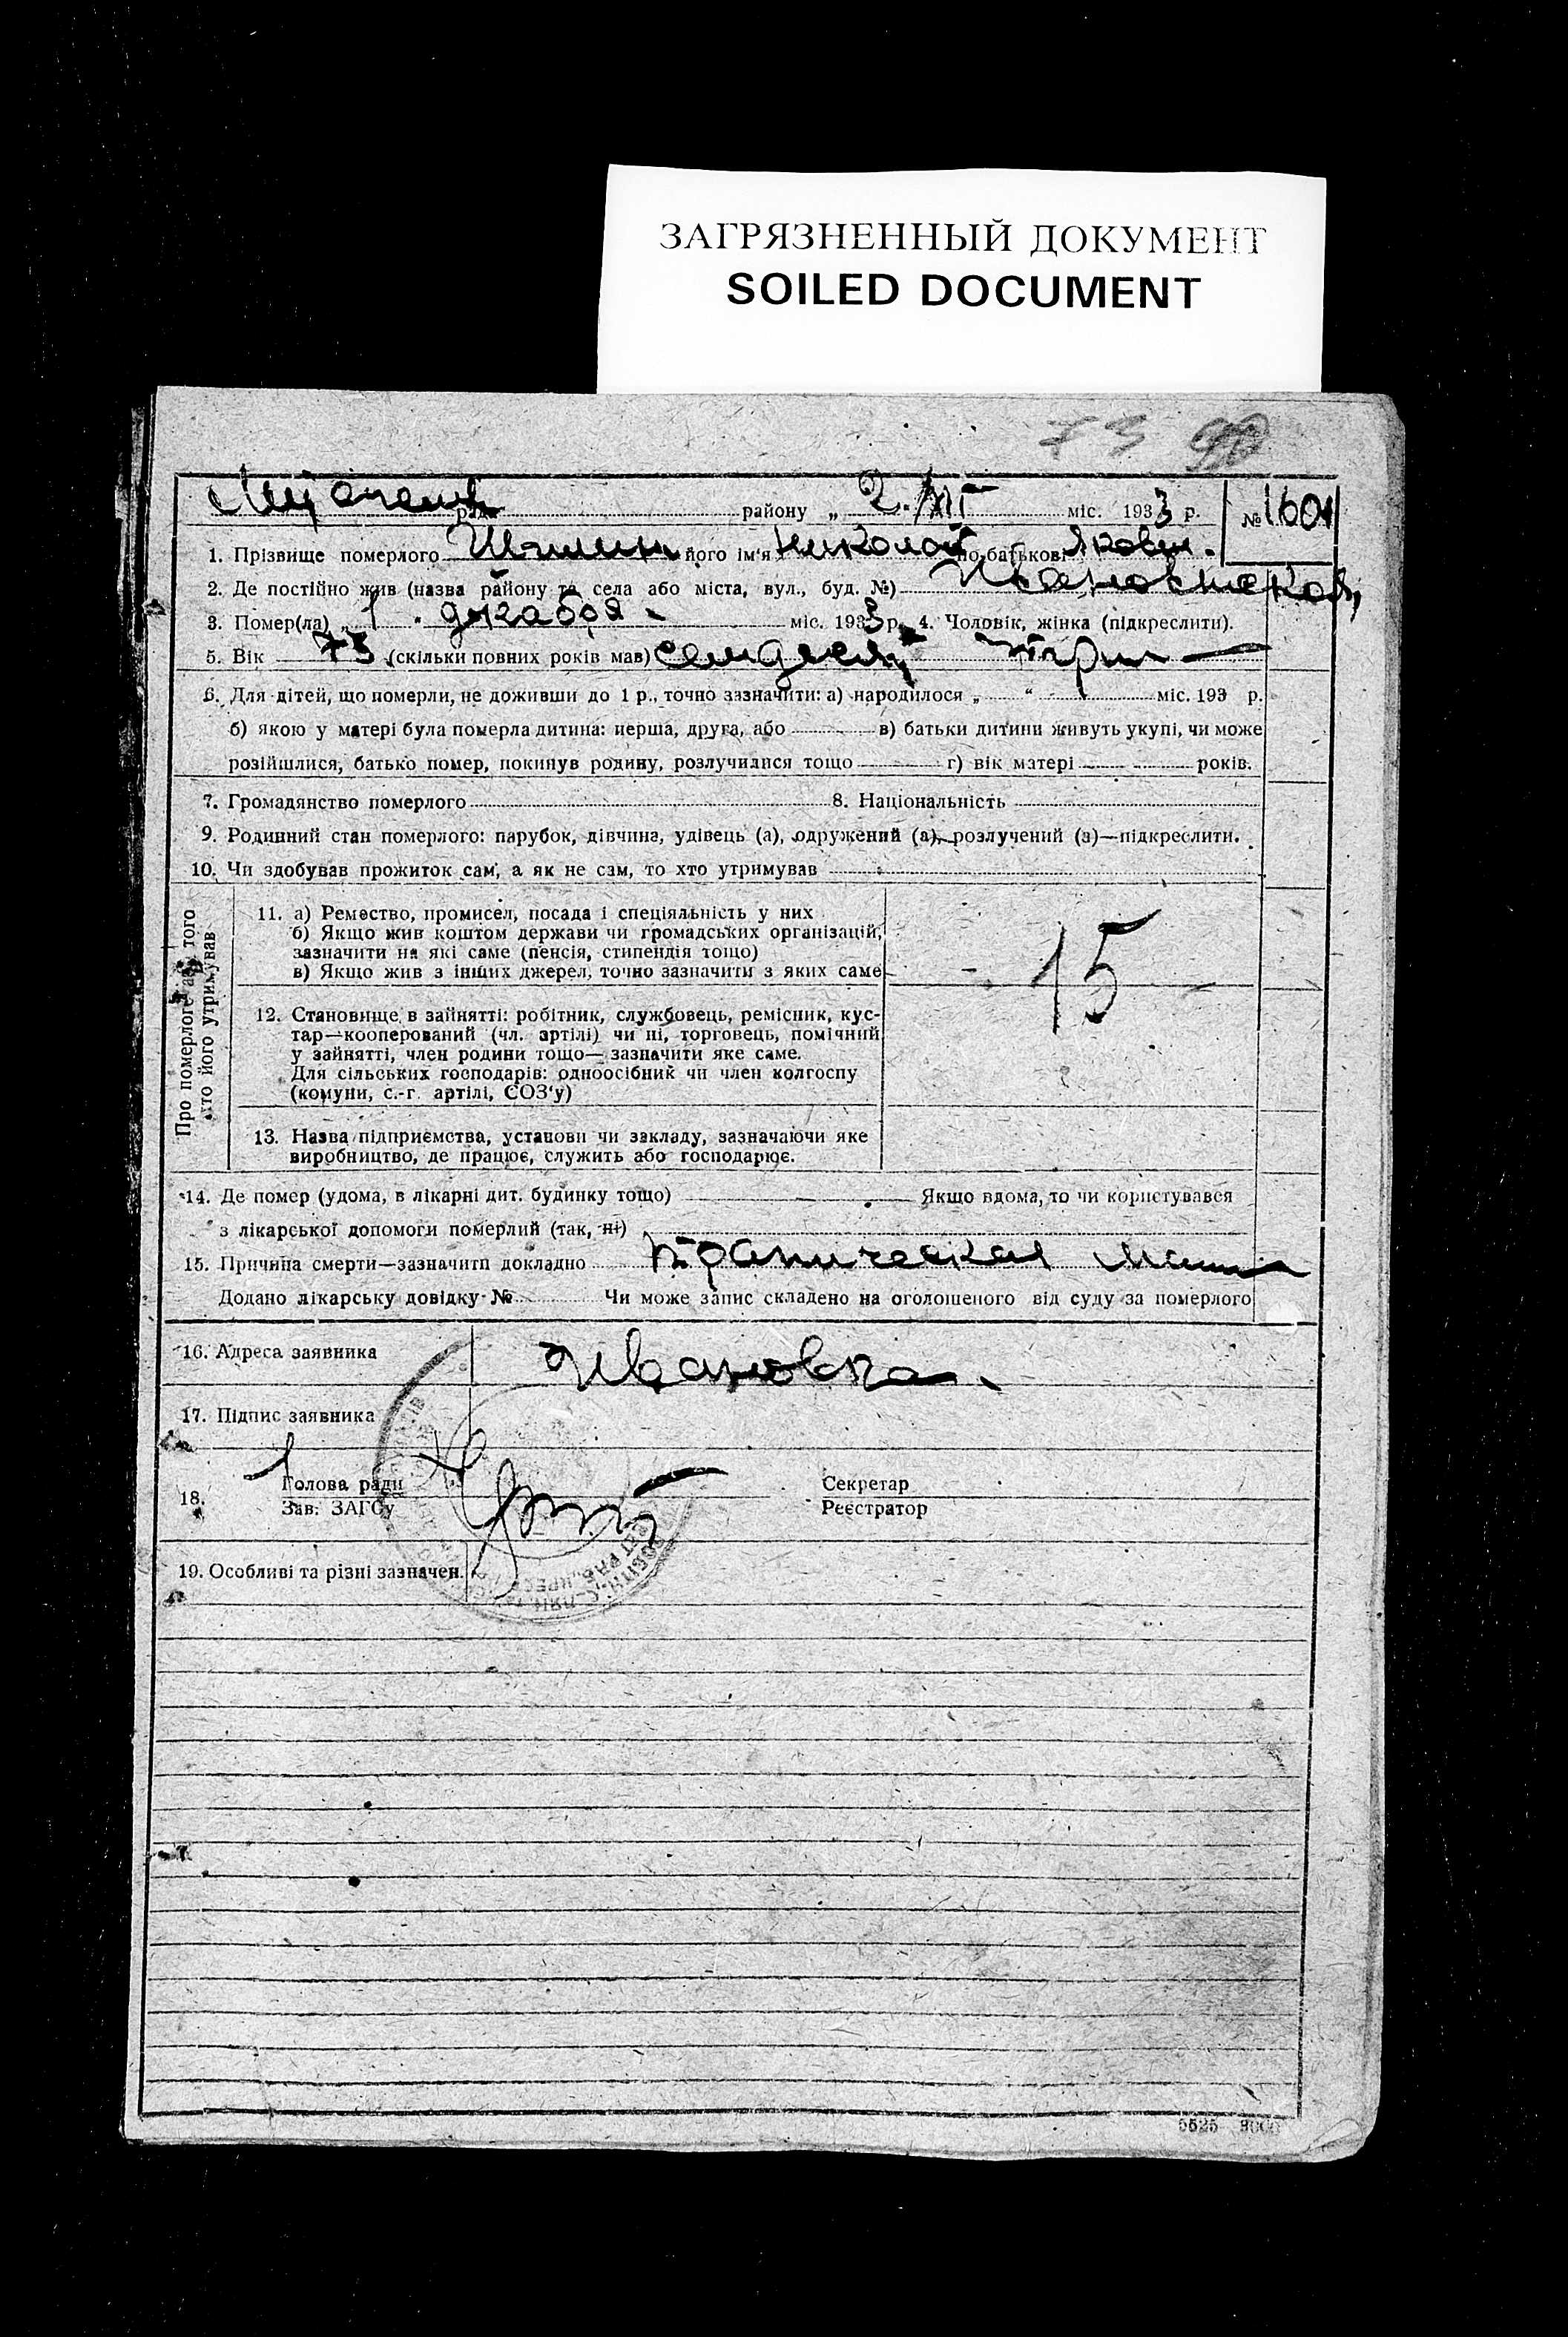 ЗАГРЯЗНЕННЫЙ ДОКУМЕНТ
SOILED DOCUMENT
73
району „ 2. XII міс. 1933 р. № 1601
1. Прізвище померлого його ім'я Николай по батькові Яковл.
2. Де постійно жив (назва району та села або міста, вул., буд. №)
3. Помер(ла) „ 1 . декабря міс. 1933 р. 4. Чоловік, жінка (підкреслити).
5. Вік 73 (скільки повних років мав) семдесят три
6. Для дітей, що померли, не доживши до 1 р., точно зазначити: а) народилося „ “ міс. 193 р.
б) якою у матері була померла дитина: перша, друга, або в) батьки дитини живуть укупі, чи може
розійшлися, батько помер, покинув родину, розлучилися тощо г) вік матері років.
7. Громадянство померлого 8. Національність
9. Родинний стан померлого: парубок, дівчина, удівець (а), одружений (а), розлучений (а)—підкреслити.
10. Чи здобував прожиток сам, а як не сам, то хто утримував
Про померлого або того
хто його утримував
11. а) Ремество, промисел, посада і спеціяльність у них
б) Якщо жив коштом держави чи громадських організацій,
зазначити на які саме (пенсія, стипендія тощо)
в) Якщо жив з інших джерел, точно зазначити з яких саме
15
12. Становище в зайнятті: робітник, службовець, ремісник, кус-
тар—кооперований (чл. артілі) чи ні, торговець, помічний
у зайнятті, член родини тощо—зазначити яке саме.
Для сільських господарів: одноосібник чи член колгоспу
(комуни, с.-г. артілі, СОЗ'у)
13. Назва підприємства, установи чи закладу, зазначаючи яке
виробництво, де працює, служить або господарює.
14. Де помер (удома, в лікарні дит. будинку тощо) Якщо вдома, то чи користувався
з лікарської допомоги померлий (так, ні)
15. Причина смерти—зазначити докладно
Додано лікарську довідку № Чи може запис складено на оголошеного від суду за померлого
16. Адреса заявника Ивановка
17. Підпис заявника
18. Голова ради Секретар
Зав. ЗАГСу Реєстратор
19. Особливі та різні зазначен.